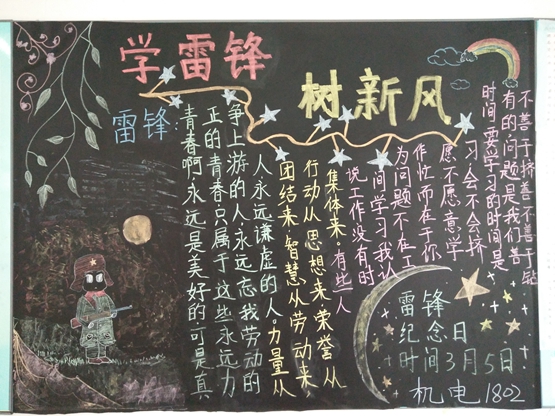 学雷锋
树新风
雷锋:
青春啊,永远是美好的可是真
正的青春只属于这些永远力
争上游的人永远忘我劳动的
人永远谦虚的人力量从
团结来,智慧从劳动来,
行动从思想来荣誉从
集体来。有些人
说工作没有时
间学习我认
为问题不在工
作忙而在于你
愿不愿意学
习会不会挤
时间要学习的时间是
有的问题是我们善
不善于挤善不善于钻
雷锋
纪念日
时间3月5日
机电1802